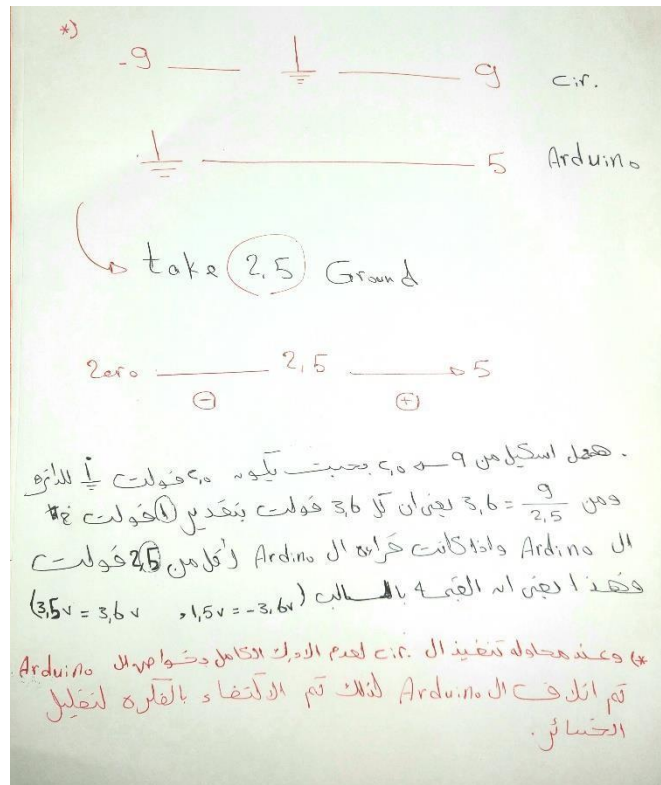 *)
-9 ⏚ 9 cir.
⏚ 5 Arduino
take 2,5 Ground
Zero 2,5 5
- +
. هعمل اسكيل من 9 → 2,5 بحيث يكون 2,5 فولت ⏚ للدائره
ومن 9/2,5 = 3,6 يعنى ان كل 3,6 فولت بتقدير 1 فولت
ال Ardino واذا كانت قراءه ال Ardino لأقل من 2,5 فولت
فهذا يعنى ان القيمة بالسالب (3,5v = 3,6v , 1,5v = -3,6v)
*) وعند محاوله تنفيذ ال cir. لعدم الادراك الكامل بخواص ال Arduino
تم اتلاف ال Arduino لذلك تم الاكتفاء بالفكره لتقليل
الخسائر.